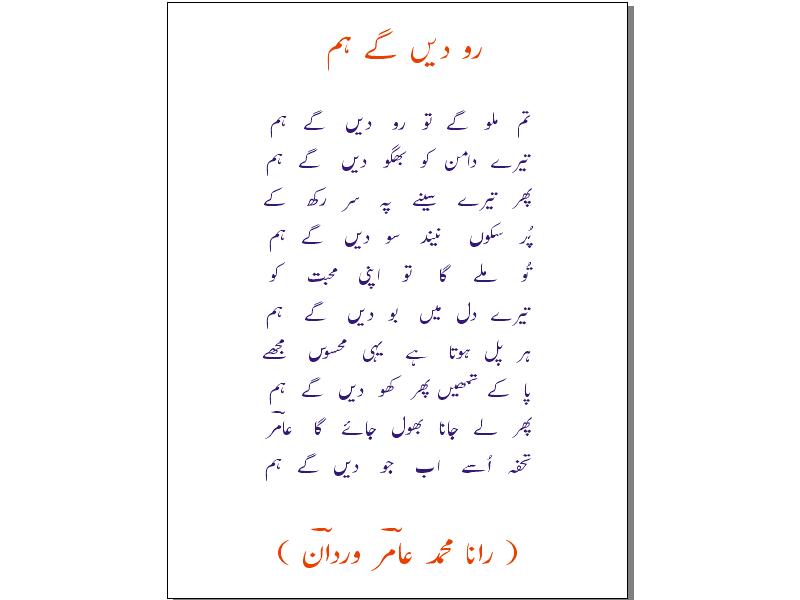 رو دیں گے ہم
تم ملو گے تو رو دیں گے ہم
تیرے دامن کو بھگو دیں گے ہم
پھر تیرے سینے پہ سر رکھ کے
پُر سکوں نیند سو دیں گے ہم
تُو ملے گا تو اپنی محبت کو
تیرے دل میں بو دیں گے ہم
ہر پل ہوتا ہے یہی محسوس مجھے
پا کے تمھیں پھر کھو دیں گے ہم
پھر لے جانا بھول جائے گا عامرؔ
تحفہ اُسے اب جو دیں گے ہم
( رانا محمد عامرؔ وردانؔ )